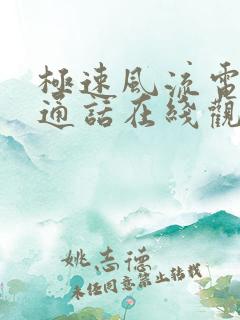 極速風流電
通話在綫觀
姚志德
未经同意禁止转载